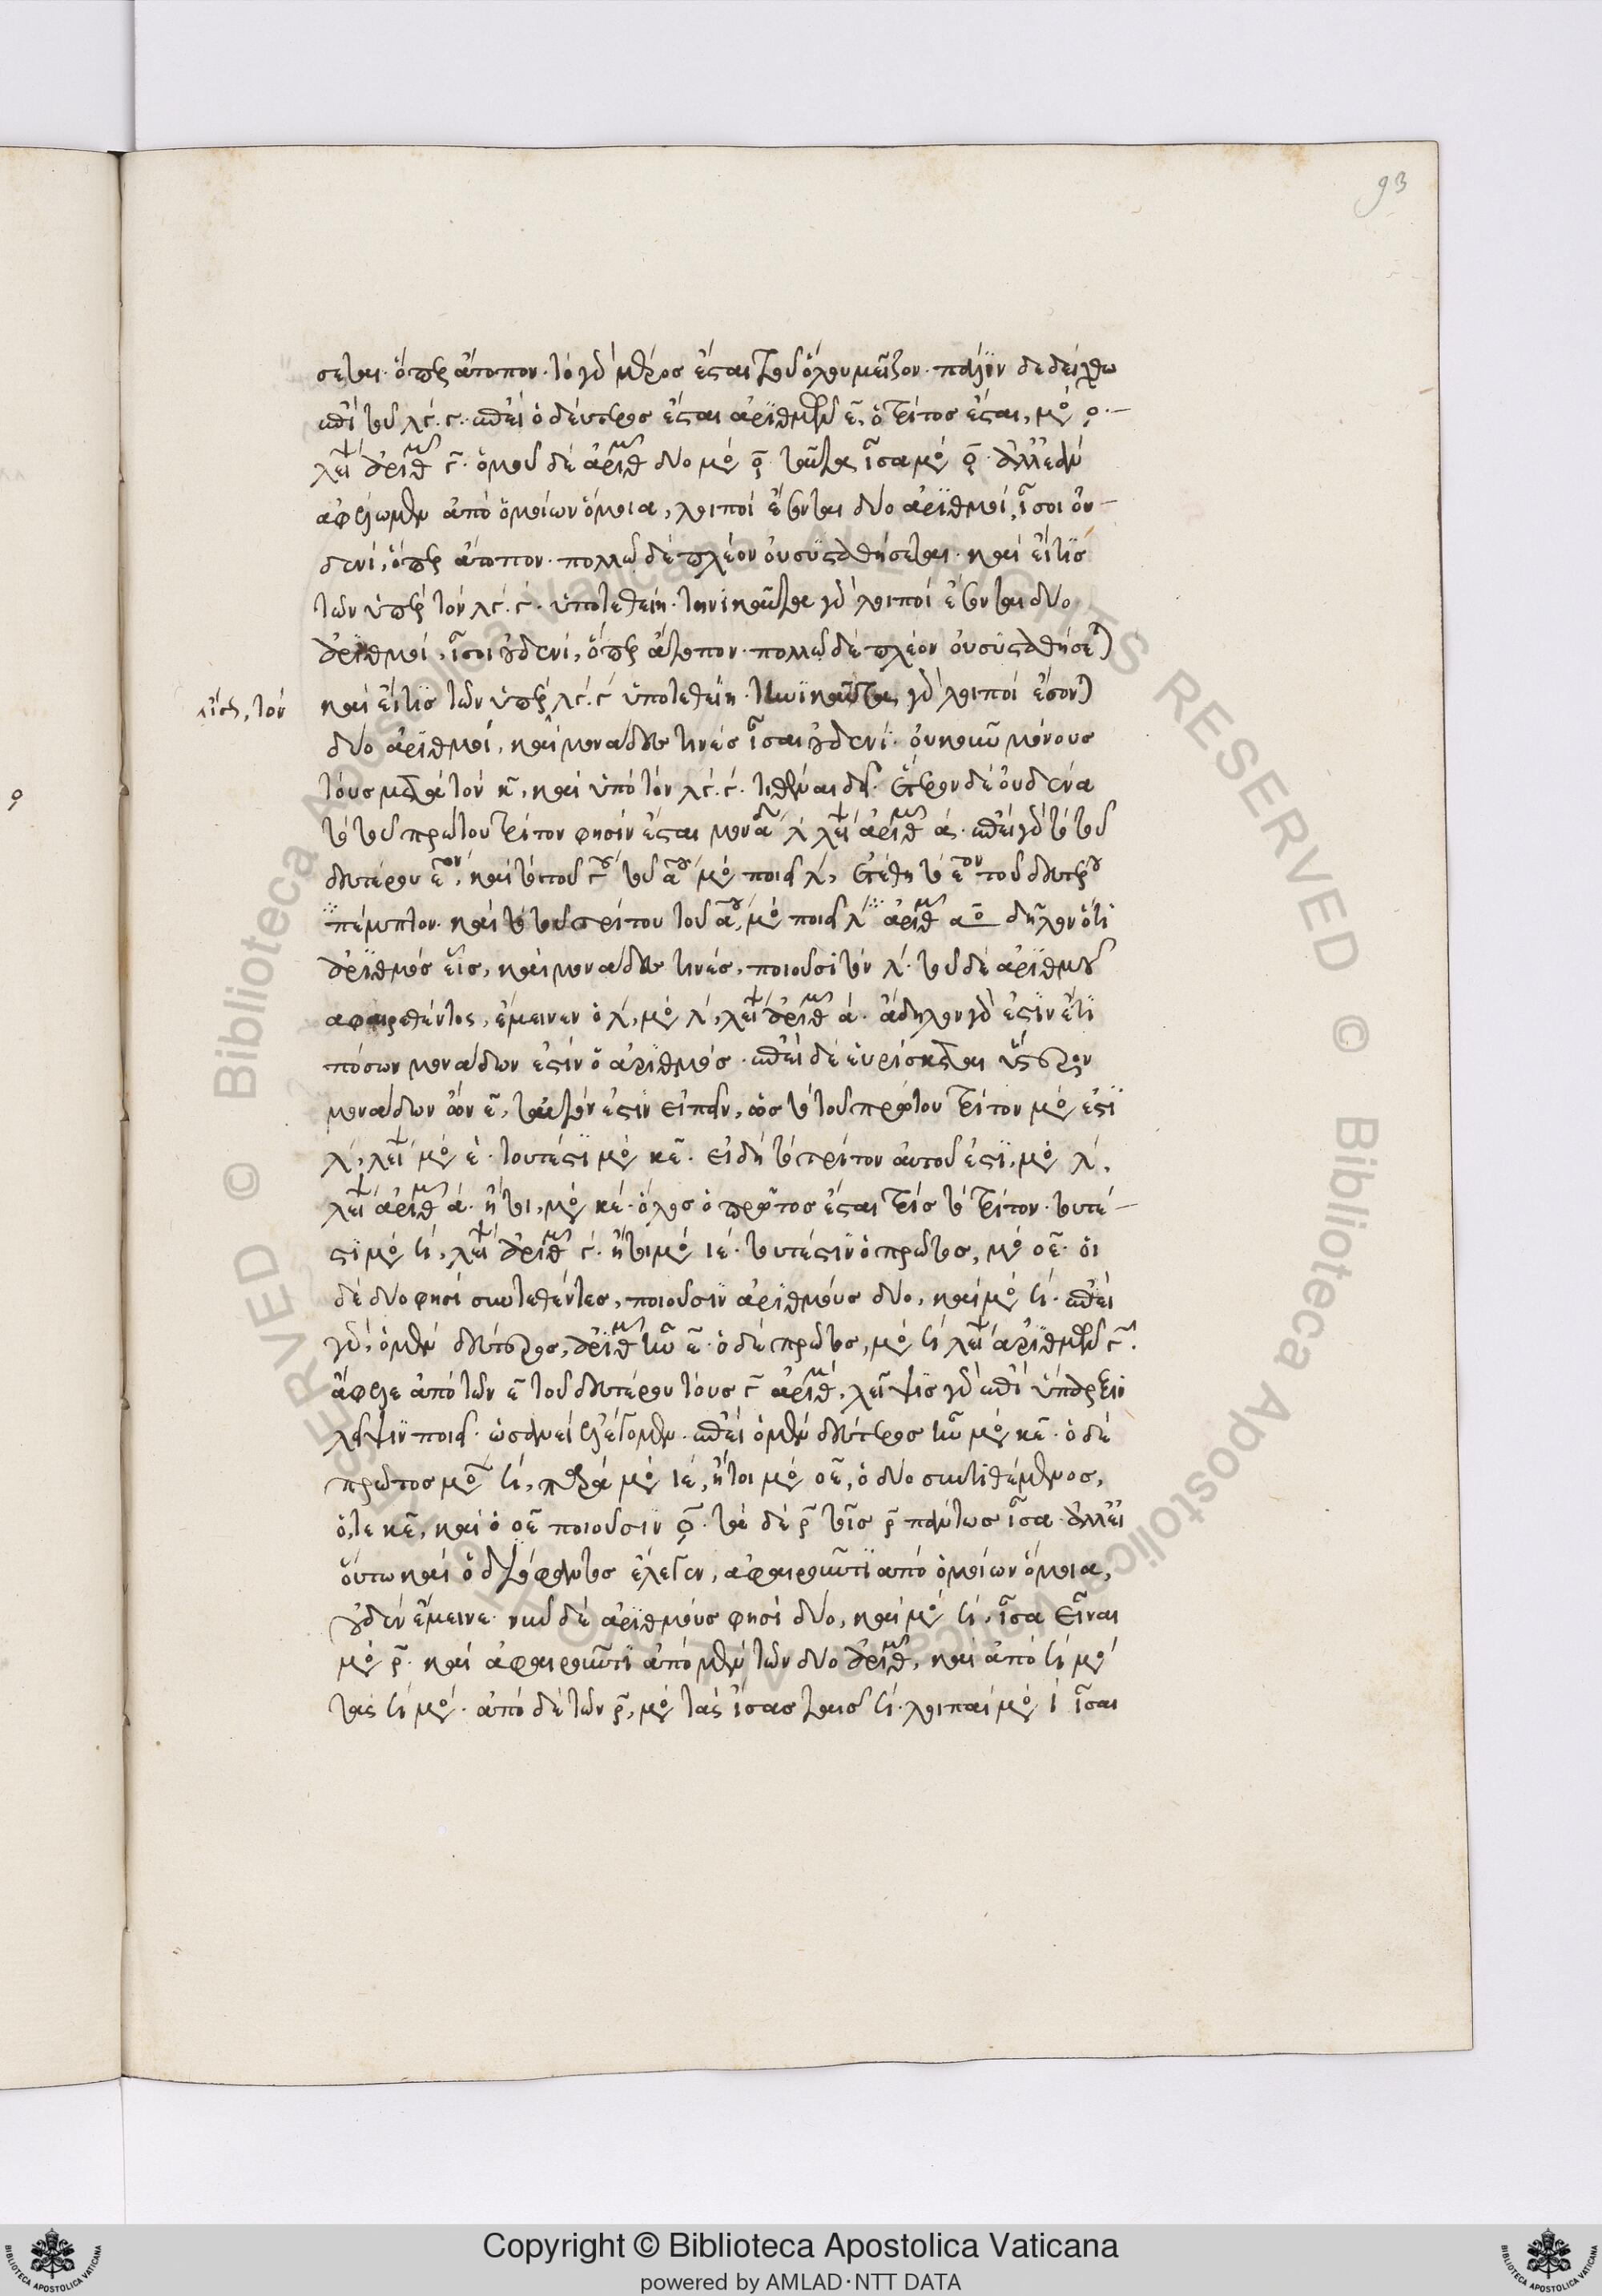 93
σεται· ὅπερ ἄτοπον· τὸ γὰρ μέρος ἔσται τοῦ ὅλου μεῖζον· πάλιν δεδείχθω
ἐπὶ τοῦ λς· ς· ἐπεὶ ὁ δεύτερος ἔσται ἀριθμῶν ε, ὁ τρίτος ἔσται, μο ϙ·
λεῖψ ἀριθμ ς· ὁμοῦ δὲ ἀριθμ δύο μο ϙ· ταῦτα ἴσα μο ϙ· ἀλλ' ἐὰν
ἀφέλωμεν ἀπὸ ὁμοίων ὅμοια, λοιποὶ ἔσονται δύο ἀριθμοὶ, ἴσοι οὐ-
δενί, ὅπερ ἄτοπον· πολλῶ δὲ πλέον οὐ συσταθήσεται· καὶ εἴ τις
τῶν ὑπὲρ τὸν λς· ς· ὑποτεθείη· τηνικαῦτα γὰρ λοιποὶ ἔσονται δύο
ἀριθμοί, ἴσοι οὐδενί, ὅπερ ἄτοπον· πολλῶ δὲ πλέον οὐ συσταθήσεται
καὶ εἴ τις τῶν ὑπὲρ λς· ς ὑποτεθείη· τηνικαῦτα γὰρ λοιποὶ ἔσονται
δύο ἀριθμοί, καὶ μονάδες τινὲς ἴσαι οὐδενί· οὐκοῦν μόνους
τοὺς μετὰ τὸν κ, καὶ ὑπὸ τὸν λς· ς· τιθέναι δεῖ· ἕτερον δὲ οὐδένα
τὸ τοῦ πρώτου τρίτον φησὶν ἔσται μονα λ λεῖψ ἀριθμ α· ἐπεὶ γὰρ τὸ τοῦ
δευτέρου εον, καὶ τὸ τοῦ γου τοῦ αου μο ποιεῖ λ, ἐτέθη τὸ εον τοῦ δευτέρου
πέμπτον· καὶ τὸ τοῦ τρίτου τοῦ αου, μο ποιεῖ λ ἀριθμ αο δηλονότι
ἀριθμὸς εἷς, καὶ μονάδες τινές, ποιοῦσι τὸν λ· τοῦ δὲ ἀριθμοῦ
ἀφαιρεθέντος, ἔμεινεν ὁ λ, μο λ, λεῖψ ἀριθμ α· ἄδηλον γὰρ ἐστὶν ἔτι
πόσων μονάδων ἐστὶν ὁ ἀριθμός· ἐπεὶ δὲ εὑρίσκεται ὕστερον
μονάδων ὢν ε, ταυτόν ἐστιν εἰπεῖν, ὡς τὸ τοῦ πρώτου τρίτον μο ἐστὶ
λ, λεῖψ μο ε· τουτέστι μο κε· εἰ δὴ τὸ τρίτον αὐτοῦ ἐστι, μο λ,
λεῖψ ἀριθμ α· ἤτοι, μο κε· ὅλος ὁ πρῶτος ἔσται τρὶς τὸ τρίτον· τουτέ-
στι μο ϙ, λεῖψ ἀριθμ γ· ἤτοι μο ιε· τουτέστιν ὁ πρῶτος, μο οε· οἱ
δὲ δύο φησὶ συντεθέντες, ποιοῦσιν ἀριθμοὺς δύο, καὶ μο ϙ· ἐπεὶ
γὰρ, ὁ μὲν δεύτερος, ἀριθμ ἦν ε· ὁ δὲ πρῶτος, μο ϙ λεῖψ ἀριθμῶν γ·
ἄφελε ἀπὸ τῶν ε τοῦ δευτέρου τοὺς γ ἀριθμ, λεῖψις γὰρ ἐπὶ ὕπαρξιν
λεῖψιν ποιεῖ· ὡσανεὶ ἐλέγομεν· ἐπεὶ ὁ μὲν δεύτερος ἦν μο κε· ὁ δὲ
πρῶτος μο ϙ, παρὰ μο ιε, ἤτοι μο οε, ὁ δύο συντιθέμενος,
ὅ τε κε, καὶ ὁ οε ποιοῦσιν ρ· τὰ δὲ ρ τοῖς ρ πάντως ἴσα· ἀλλ' εἰ
οὕτω καὶ ὁ Διόφαντος ἔλεγεν, ἀφαιροῦντι ἀπὸ ὁμοίων ὅμοια,
οὐδὲν ἔμεινε· νῦν δὲ ἀριθμοὺς φησὶ δύο, καὶ μο ϙ, ἴσα εἶναι
μο ρ· καὶ ἀφαιροῦντι ἀπὸ μὲν τῶν δύο ἀριθμ, καὶ ἀπὸ ϙ μο
τὰς ϙ μο· ἀπὸ δὲ τῶν ρ, μο τὰς ἴσας ταῖς ϙ· λοιπαὶ μο ι ἴσαι